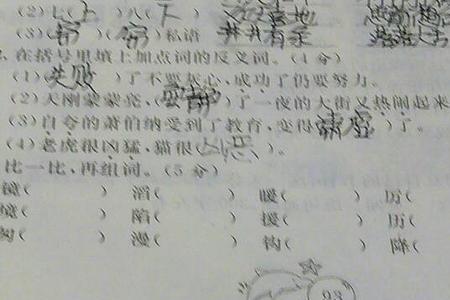 (2)七(上)八(下)
(3)(窃)(窃)私语 井井有条
在括号里填上加点词的反义词。(4分)
(1)(失败)了不要灰心,成功了仍要努力。
(2)天刚蒙蒙亮,( )了一夜的大街又热闹起来
(3)自夸的萧伯纳受到了教育,变得(谦虚)了。
(4)老虎很凶猛,猫很( )。
比一比,再组词。(5分)
镜( ) 滔( ) 暖( ) 厉( )
境( ) 陷( ) 援( ) 历( )
匈( ) 漫( ) 钩( ) 降(
93